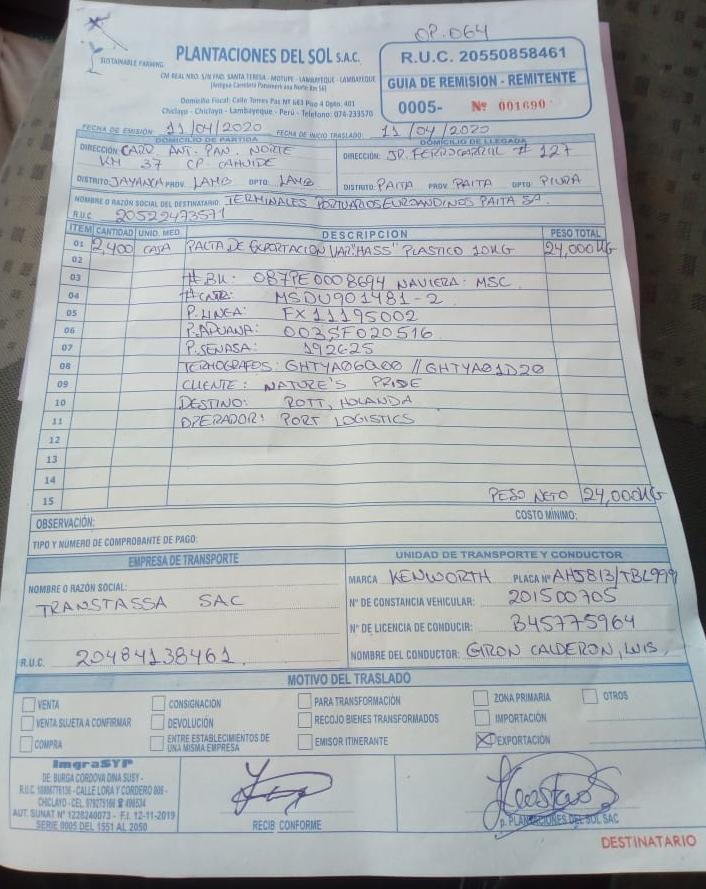 OP. 064
SUSTAINABLE FARMING
PLANTACIONES DEL SOL S.A.C.
CM REAL NRO. S/N FND. SANTA TERESA - MOTUPE - LAMBAYEQUE - LAMBAYEQUE
(Antigua Carretera Panamericana Norte Km 56)
Domicilio Fiscal: Calle Torres Paz Nº 663 Piso 4 Dpto. 401
Chiclayo - Chiclayo - Lambayeque - Perú - Telefono: 074-233570
R.U.C. 20550858461
GUIA DE REMISION - REMITENTE
0005- Nº 001690
FECHA DE EMISIÓN: 11/04/2020 FECHA DE INICIO TRASLADO: 11/04/2020
DOMICILIO DE PARTIDA
DIRECCIÓN: CARR ANT. PAN. NORTE
KM 37 CP CAHUIDE
DISTRITO: JAYANCA PROV. LAMB DPTO. LAMB
DOMICILIO DE LLEGADA
DIRECCIÓN: JR. FERROCARRIL # 127
DISTRITO: PAITA PROV. PAITA DPTO. PIURA
NOMBRE O RAZÓN SOCIAL DEL DESTINATARIO: TERMINALES PORTUARIOS EUROANDINOS PAITA SA.
R.U.C. 20522473571
ITEM CANTIDAD UNID. MED. DESCRIPCION PESO TOTAL
01 2,400 CAJA PALTA DE EXPORTACION VAR."HASS" PLASTICO 10KG 24,000KG
02
03 # BK: 087PE0008694 NAVIERA: MSC
04 # CNTR: MSDU901481-2
05 P. LINEA: FX11195002
06 P. ADUANA: 003SF020516
07 P. SENASA: 192625
08 TERMOGRAFOS: GHTYA06Q00 // GHTYA01D20
09 CLIENTE: NATURE'S PRIDE
10 DESTINO: ROTT, HOLANDA
11 OPERADOR: PORT LOGISTICS
12
13
14
15 PESO NETO 24,000KG
OBSERVACIÓN: COSTO MÍNIMO:
TIPO Y NÚMERO DE COMPROBANTE DE PAGO:
EMPRESA DE TRANSPORTE
NOMBRE O RAZÓN SOCIAL:
TRANSTASSA SAC
R.U.C. 20484138461
UNIDAD DE TRANSPORTE Y CONDUCTOR
MARCA KENWORTH PLACA Nº AHJ813/TBL999
Nº DE CONSTANCIA VEHICULAR: 201500705
Nº DE LICENCIA DE CONDUCIR: B45775964
NOMBRE DEL CONDUCTOR: GIRON CALDERON, LUIS
MOTIVO DEL TRASLADO
VENTA CONSIGNACIÓN PARA TRANSFORMACIÓN ZONA PRIMARIA OTROS
VENTA SUJETA A CONFIRMAR DEVOLUCIÓN RECOJO BIENES TRANSFORMADOS IMPORTACIÓN
COMPRA ENTRE ESTABLECIMIENTOS DE UNA MISMA EMPRESA EMISOR ITINERANTE X EXPORTACIÓN
ImgraSYP
DE: BURGA CORDOVA DINA SUSY -
R.U.C. - CALLE LORA Y CORDERO 806 -
CHICLAYO - CEL. 979275166 496534
AUT. SUNAT Nº 1228240073 - F.I. 12-11-2019
SERIE 0005 DEL 1551 AL 2050
RECIBI CONFORME
p. PLANTACIONES DEL SOL SAC
DESTINATARIO